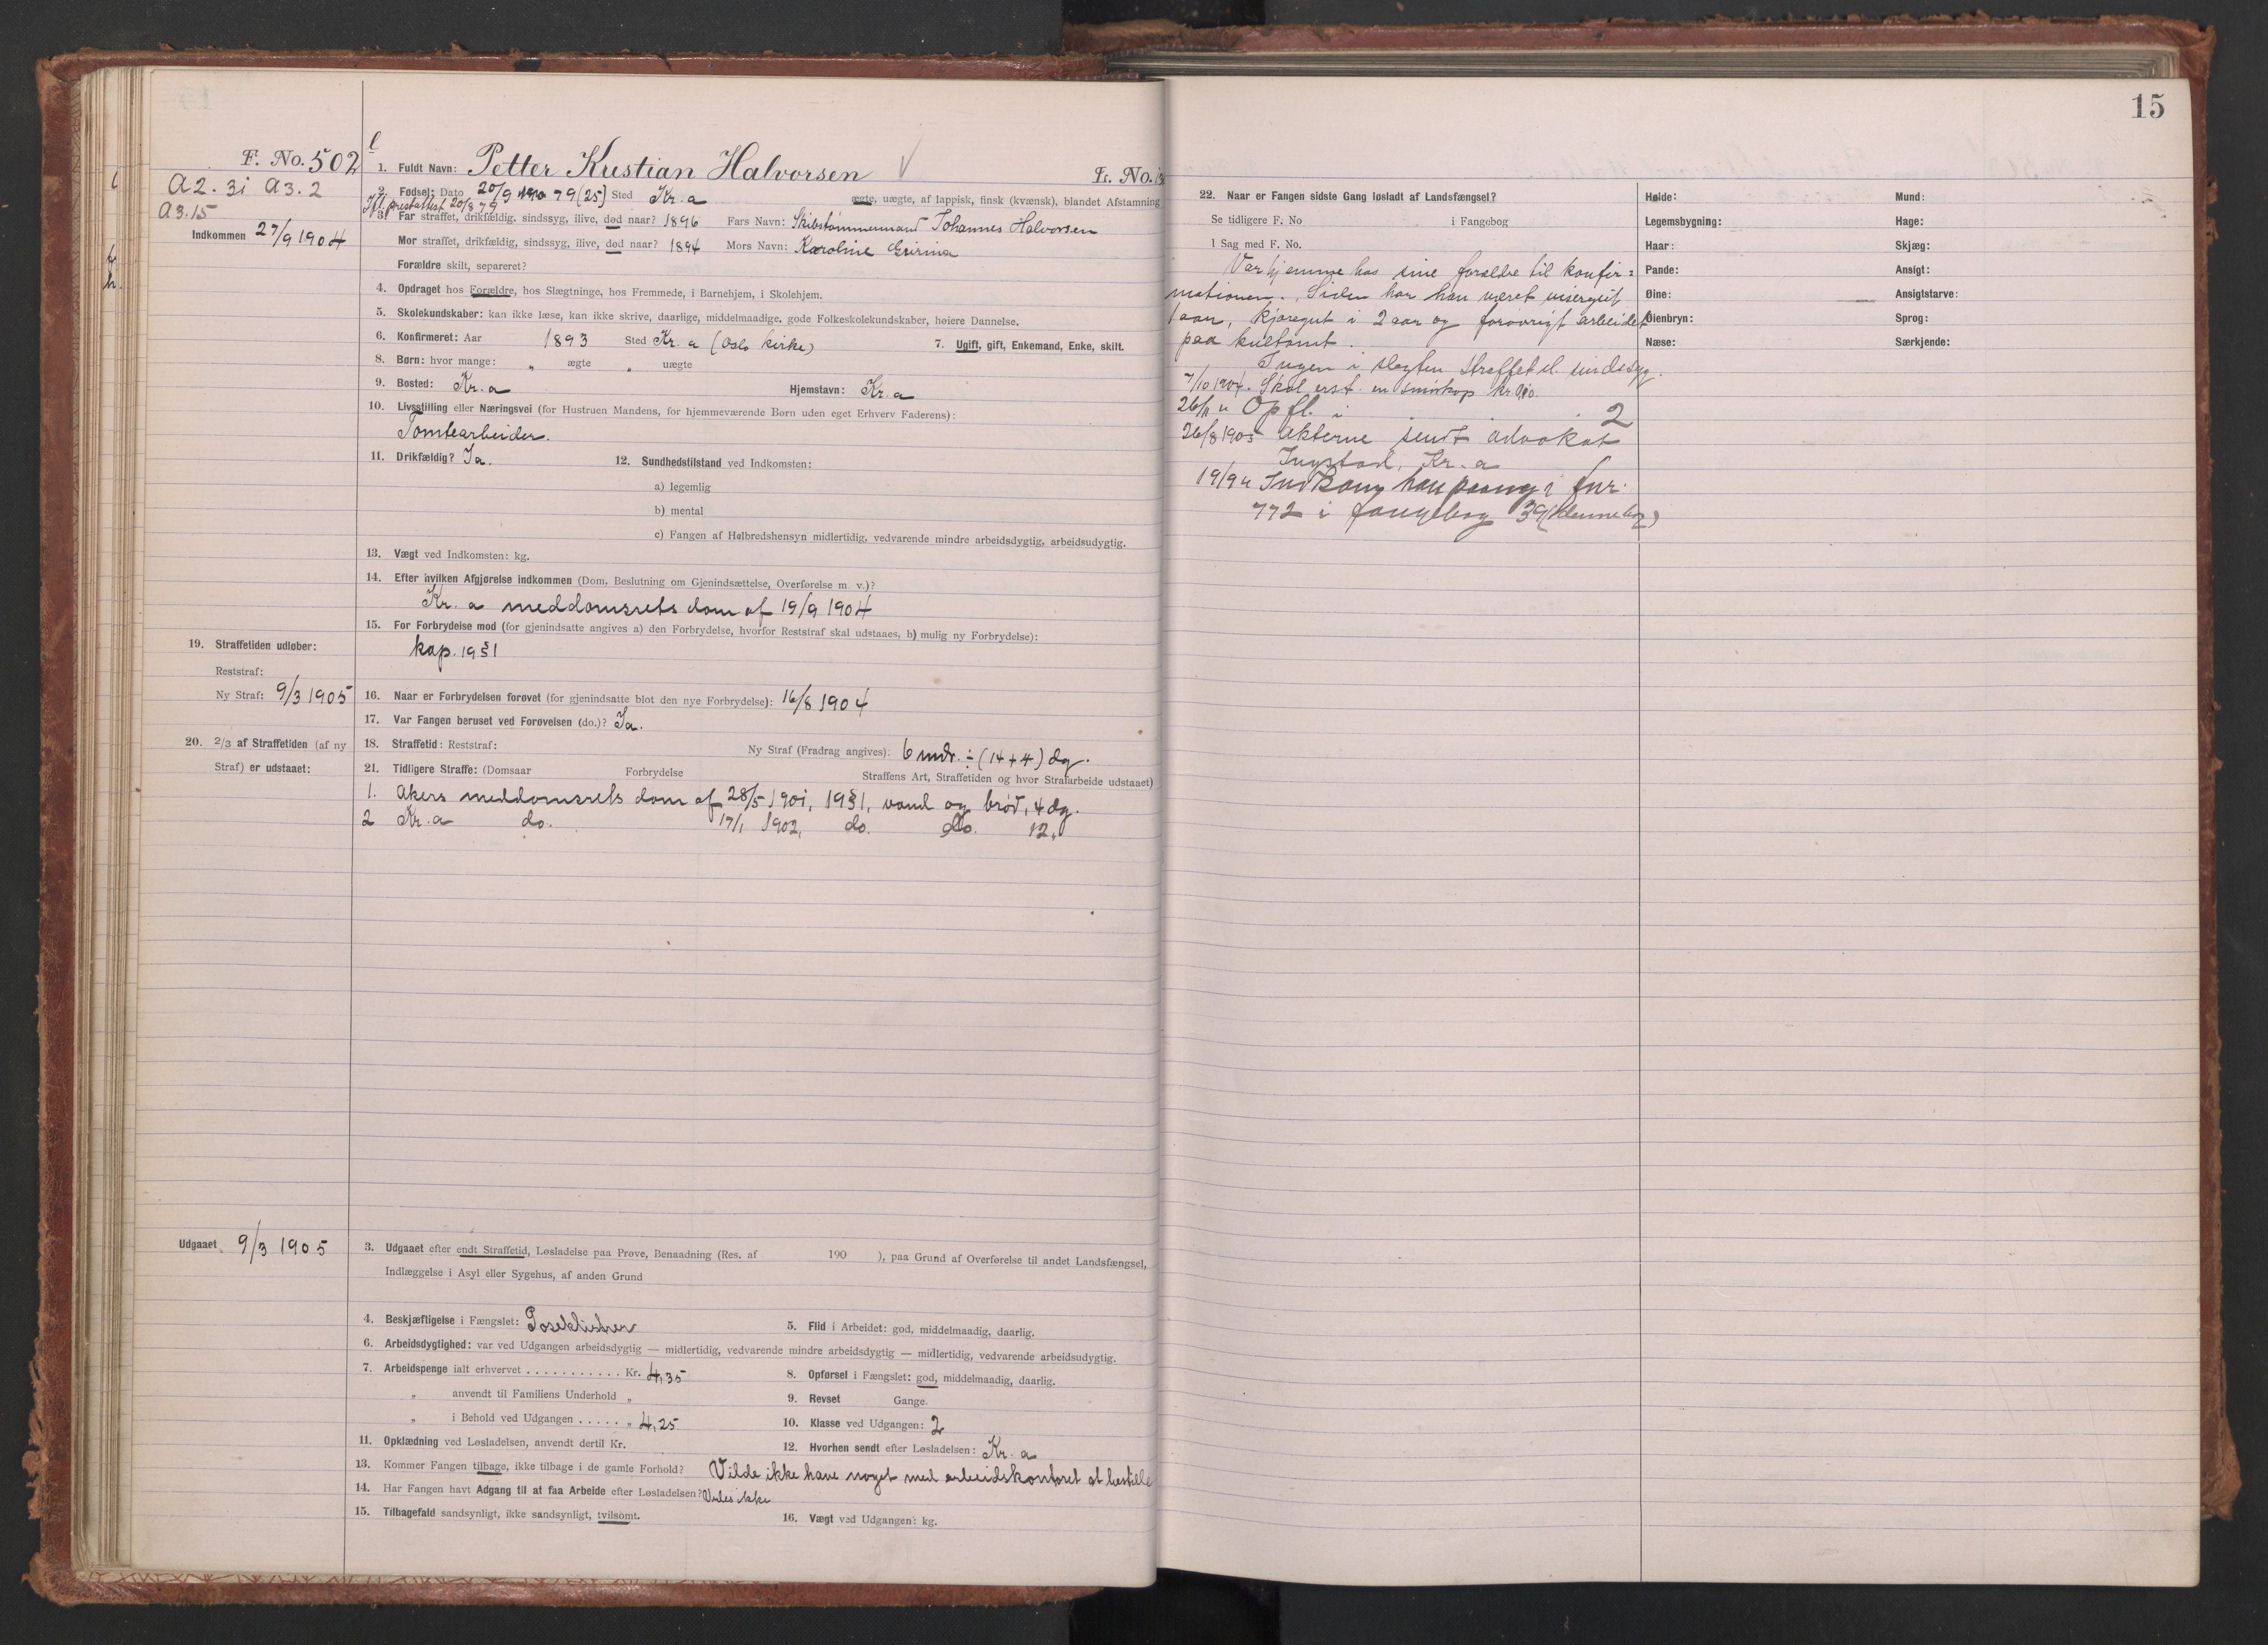 15
F. No. 502
1. Fuldt Navn: Petter Kristian Halvorsen
Fr. No.
A2. 31 A3. 2
A3. 15
Indkommen 27/9 1904
2. Fødsel: Dato 20/9 79 (25) Sted Kr.a ægte, uægte, af lappisk, finsk (kvænsk), blandet Afstamning
Ifl. prestattest 20/8 79
3. Far straffet, drikfældig, sindssyg, ilive, død naar? 1896 Fars Navn: Skibstømmermand Johannes Halvorsen
Mor straffet, drikfældig, sindssyg, ilive, død naar? 1894 Mors Navn: Karoline
Forældre skilt, separeret?
4. Opdraget hos Forældre, hos Slægtninge, hos Fremmede, i Barnehjem, i Skolehjem.
5. Skolekundskaber: kan ikke læse, kan ikke skrive, daarlige, middelmaadige, gode Folkeskolekundskaber, høiere Dannelse.
6. Konfirmeret: Aar 1893 Sted Kr.a (Oslo kirke) 7. Ugift, gift, Enkemand, Enke, skilt.
8. Børn: hvor mange: „ ægte „ uægte
9. Bosted: Kr.a Hjemstavn: Kr.a
10. Livsstilling eller Næringsvei (for Hustruen Mandens, for hjemmeværende Børn uden eget Erhverv Faderens):
Tomtearbeider.
11. Drikfældig? Ja. 12. Sundhedstilstand ved Indkomsten:
a) legemlig
b) mental
c) Fangen af Helbredshensyn midlertidig, vedvarende mindre arbeidsdygtig, arbeidsudygtig.
13. Vægt ved Indkomsten: kg.
14. Efter hvilken Afgjørelse indkommen (Dom, Beslutning om Gjenindsættelse, Overførelse m. v.)?
Kr.a meddomsrets dom af 19/9 1904
15. For Forbrydelse mod (for gjenindsatte angives a) den Forbrydelse, hvorfor Reststraf skal udstaaes, b) mulig ny Forbrydelse):
kap. 19 § 1
19. Straffetiden udløber:
Reststraf:
Ny Straf: 9/3 1905
16. Naar er Forbrydelsen forøvet (for gjenindsatte blot den nye Forbrydelse): 16/8 1904
17. Var Fangen beruset ved Forøvelsen (do.)? Ja.
20. 2/3 af Straffetiden (af ny
Straf) er udstaaet:
18. Straffetid: Reststraf: Ny Straf (Fradrag angives): 6 mdr. ÷ (14+4) dg.
21. Tidligere Straffe: (Domsaar Forbrydelse Straffens Art, Straffetiden og hvor Strafarbeide udstaaet)
1. Akers meddomsrets dom af 28/5 1901, 19 § 1, vand og brød, 4 dg.
2 Kr.a do. 17/1 1902, do. do. 12 „
Udgaaet 9/3 1905
3. Udgaaet efter endt Straffetid, Løsladelse paa Prøve, Benaadning (Res. af 190 ), paa Grund af Overførelse til andet Landsfængsel,
Indlæggelse i Asyl eller Sygehus, af anden Grund
4. Beskjæftigelse i Fængslet: Poseklistrer 5. Flid i Arbeidet: god, middelmaadig, daarlig.
6. Arbeidsdygtighed: var ved Udgangen arbeidsdygtig — midlertidig, vedvarende mindre arbeidsdygtig — midlertidig, vedvarende arbeidsudygtig.
7. Arbeidspenge ialt erhvervet . . . . . . . . . . . Kr. 4,35 8. Opførsel i Fængslet: god, middelmaadig, daarlig.
„ anvendt til Familiens Underhold „ 9. Revset Gange.
„ i Behold ved Udgangen . . . . . „ 4,25 10. Klasse ved Udgangen: 2
11. Opklædning ved Løsladelsen, anvendt dertil Kr. 12. Hvorhen sendt efter Løsladelsen: Kr.a
13. Kommer Fangen tilbage, ikke tilbage i de gamle Forhold? Vilde ikke have noget med arbeidskontoret at bestille
14. Har Fangen havt Adgang til at faa Arbeide efter Løsladelsen? Vides ikke
15. Tilbagefald sandsynligt, ikke sandsynligt, tvilsomt. 16. Vægt ved Udgangen: kg.
22. Naar er Fangen sidste Gang løsladt af Landsfængsel?
Se tidligere F. No i Fangebog
I Sag med F. No.
Var hjemme hos sine forældre til konfir=
mationen. Siden har han været visergut
1 aar, kjøregut i 2 aar og forøvrigt arbeidet
paa
Ingen i slegten straffet el. sindssyg.
7/10 1904. Skal erst. en kr.
26/11 „ Opfl. i 2
26/8 1905 Akterne sendt advokat
Kr.a
19/9 „ Indkom han paany i fnr.
772 i fangebog 39
Høide:
Legemsbygning:
Haar:
Pande:
Øine:
Øienbryn:
Næse:
Mund:
Hage:
Skjæg:
Ansigt:
Ansigtstarve:
Sprog:
Særkjende: